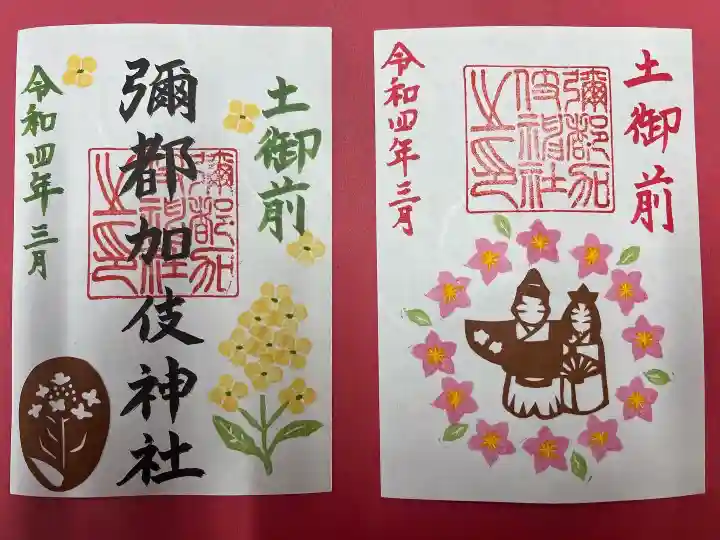 土御前
彌都加伎神社
令和四年三月
彌都加
伎神社
之印
土御前
令和四年三月
彌都加
伎神社
之印